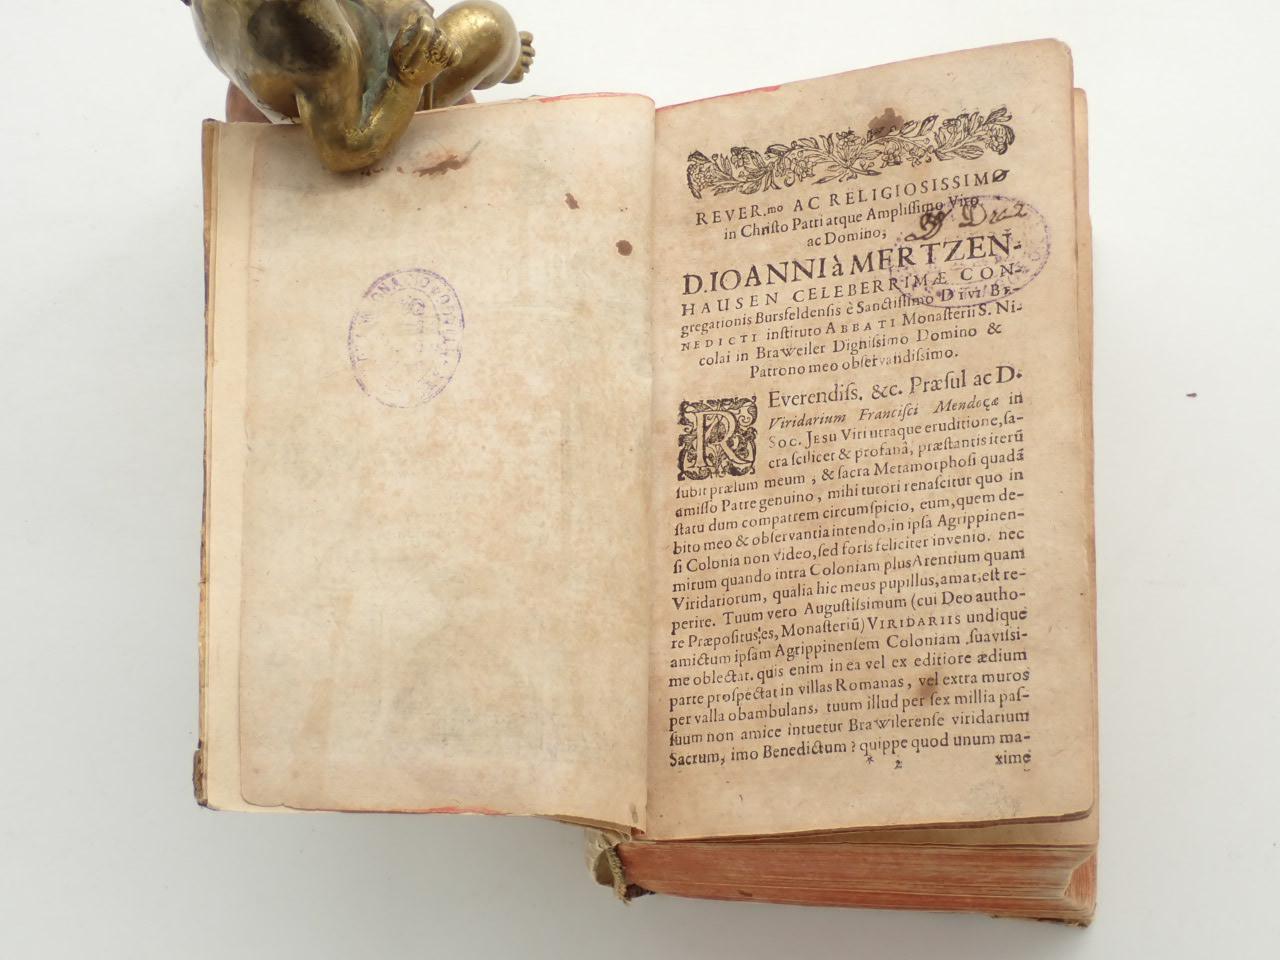 REVER.mo AC RELIGIOSISSIMO
in Christo Patri atque Amplissimo Viro
ac Domino;
D. IOANNI à MERTZEN-
HAUSEN CELEBERRIMÆ CON-
gregationis Bursfeldensis è Sanctissimo DIVI BE-
NEDICTI instituto ABBATI Monasterii S. Ni-
colai in Braweiler Dignissimo Domino &
Patrono meo observandissimo.
REverendiss. &c. Præsul ac D.
Viridarium Francisci Mendoçæ in
SOC. JESU Viri utraque eruditione, sa-
cra scilicet & profanâ, præstantis iterū
subit prælum meum, & sacra Metamorphosi quadā
amisso Patre genuino, mihi tutori renascitur quo in
statu dum compatrem circumspicio, eum, quem de-
bito meo & observantia intendo, in ipsa Agrippinen-
si Colonia non video, sed foris feliciter invenio. nec
mirum quando intra Coloniam plus Arentium quam
Viridariorum, qualia hic meus pupillus, amat, est re-
perire. Tuum vero Augustissimum (cui Deo autho-
re Præpositus es, Monasteriū) VIRIDARIIS undique
amictum ipsam Agrippinensem Coloniam suavissi-
me oblectat. quis enim in ea vel ex editiore ædium
parte prospectat in villas Romanas, vel extra muros
per valla obambulans, tuum illud per sex millia pas-
suum non amice intuetur Brawilerense viridarium
Sacrum, imo Benedictum? quippe quod unum ma-
* 2 xime